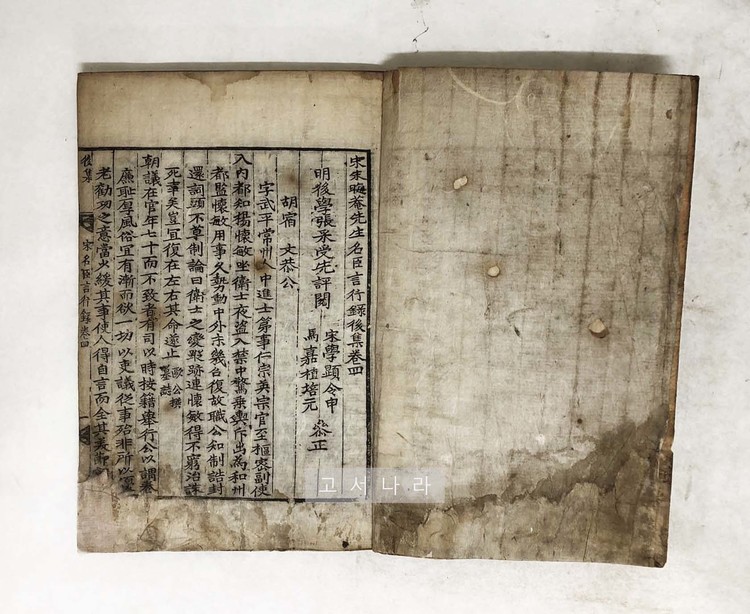 宋朱晦菴先生名臣言行錄後集卷四
明後學張采受先評閱
宋學顯令申
馬嘉植培元
叅正
胡宿 文恭公
字武平常州人中進士第事仁宗英宗官至樞密副使
入內都知楊懷敏坐衛士夜盜入禁中驚乗輿斥出為和州
都監懷敏用事久勢動中外未幾召復故職公知制誥封
還詞頭不草制論曰衛士之變蹤跡連懷敏得不窮治誅
死幸矣豈冝復在左右其命遂止 歐公撰墓誌
朝議在官年七十而不致者有司以時按籍舉行公以謂養
廉恥厚風俗冝有漸而欲一切以吏議從事殆非所以優
老勸功之意當少緩其事使人得自言而全其美節
後集 宋名臣言行錄卷四 一
고서나라